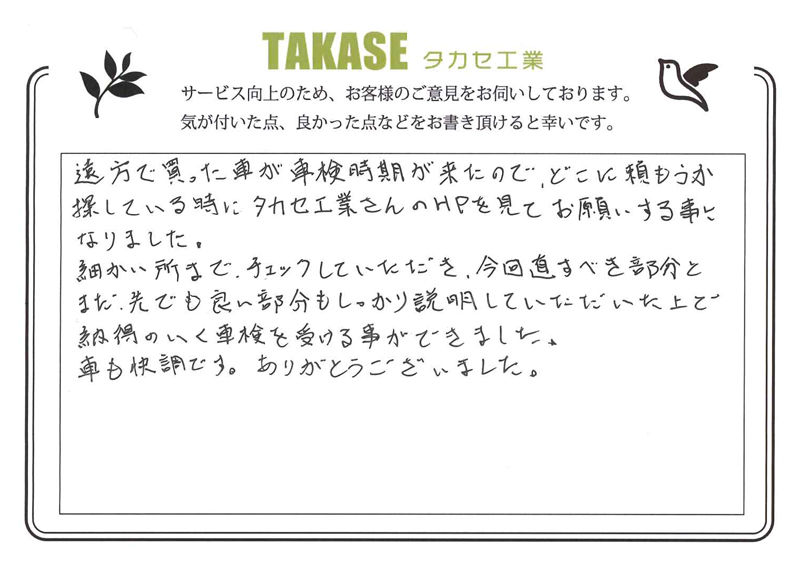 TAKASE タカセ工業
サービス向上のため、お客様のご意見をお伺いしております。
気が付いた点、良かった点などをお書き頂けると幸いです。
遠方で買った車が車検時期が来たので、どこに頼もうか
探している時にタカセ工業さんのHPを見てお願いする事に
なりました。
細かい所まで、チェックしていただき、今回直すべき部分と
まだ、先でも良い部分もしっかり説明していただいた上で
納得のいく車検を受ける事ができました。
車も快調です。ありがとうございました。